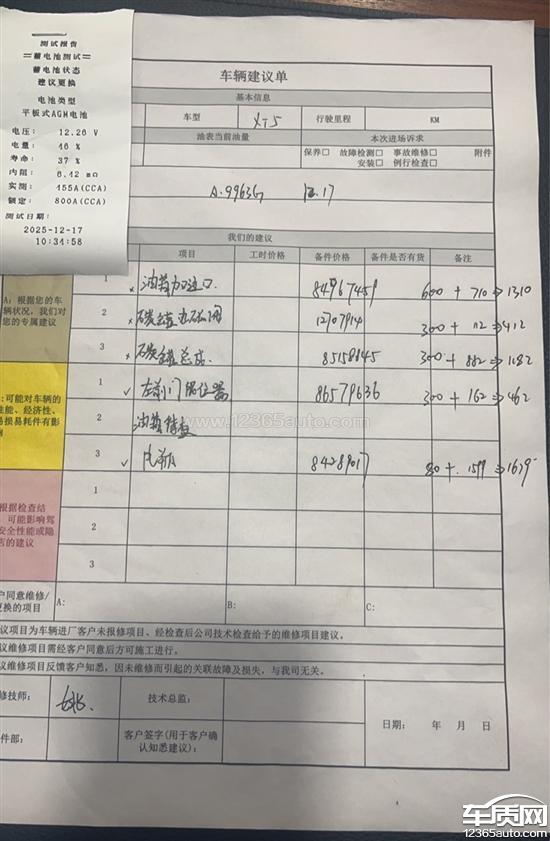 测试报告
==蓄电池测试==
蓄电池状态
建议更换
电池类型
平板式AGM电池
电压: 12.26 V
电量: 46 %
寿命: 37 %
内阻: 6.42 mΩ
实测: 455A(CCA)
额定: 800A(CCA)
测试日期:
2025-12-17
10:34:58
车辆建议单
基本信息
车型 XT5 行驶里程 KM
油表当前油量 本次进场诉求
保养□ 故障检测□ 事故维修□ 附件
安装□ 例行检查□
A·9963G 12.17
我们的建议
项目 工时价格 备件价格 备件是否有货 备注
A: 根据您的车
辆状况,我们对
您的专属建议
1 × 油箱加注口 84967459 600 + 710 ⇒ 1310
2 × 碳罐电磁阀 12707914 300 + 112 ⇒ 412
3 × 碳罐总成 85158845 300 + 882 ⇒ 1182
:可能对车辆的
性能、经济性、
易损易耗件有影
1 ✓ 左前门限位器 86579636 300 + 162 ⇒ 462
2 油箱检查
3 ✓ 电瓶 84289017 80 + 1599 ⇒ 1679
www.12365auto.com
根据检查结
,可能影响驾
安全性能或隐
的建议
1
2
3
户同意维修/
更换的项目 A: B: C:
议项目为车辆进厂客户未报修项目、经检查后公司技术检查给予的维修项目建议。
议维修项目需经客户同意后方可施工进行。
议维修项目反馈客户知悉,因未维修而引起的关联故障及损失,与我司无关。
修技师: 技术总监:
日期: 年 月 日
件部: 客户签字(用于客户确
认知悉建议):
车质网
12365auto.com